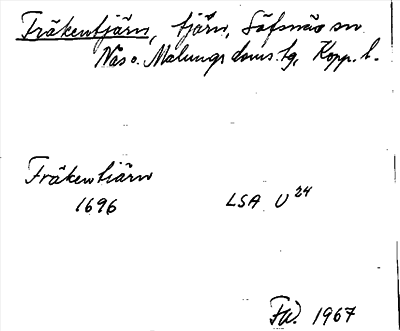 Fräkentjärn, tjärn, Säfsnäs sn
Nås o. Malungs doms. tg, Kopp. l.
Fräkentiärn
1696 LSA U 24
FW. 1967